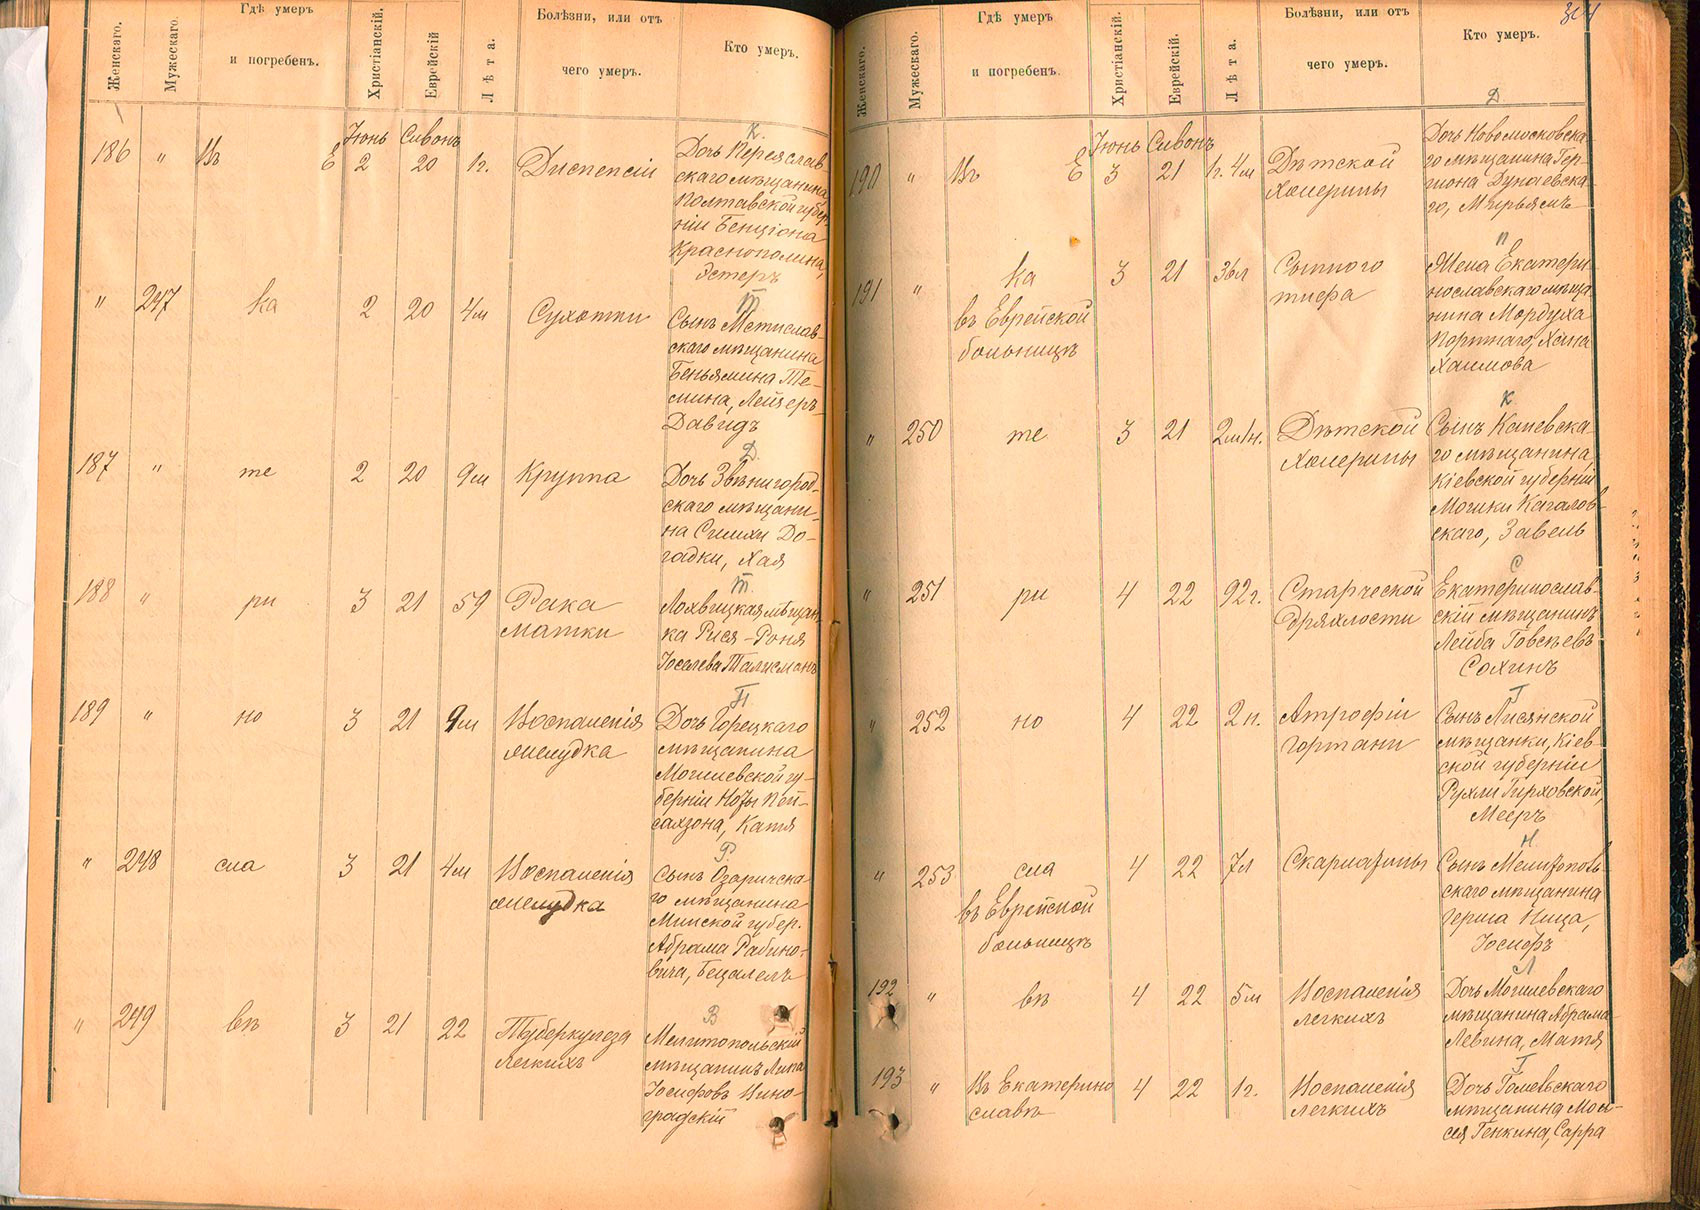 Женскаго.
Мужескаго.
Гдѣ умеръ
и погребенъ.
Христіанскій.
Еврейскій
Лѣта.
Болѣзни, или отъ
чего умеръ.
Кто умеръ.
Іюнь Сивонъ
186 " Въ Е 2 20 1 г. Диспепсіи
К.
Дочь Переяслав-
скаго мѣщанина
Полтавской губер-
ніи Бенціона
Краснополина,
Эстеръ
" 247 ка 2 20 4 м Сухотки
Т
Сынъ Мстислав-
скаго мѣщанина
Беньямина Те-
мина, Лейзеръ-
Давидъ
187 " те 2 20 9 м Круппа
Д
Дочь Звѣнигород-
скаго мѣщани-
на Симхи До-
гадки, Хая
188 " ри 3 21 59 Рака
матки
Т.
Лохвицкая мѣщан-
ка Рися-Роня
Іоселева Талисманъ
189 " но 3 21 9 м Воспаленія
желудка
П
Дочь Горецкаго
мѣщанина
Могилевской гу-
берніи Ноты Пей-
сахзона, Катя
" 248 сла 3 21 4 м Воспаленія
желудка
Р.
Сынъ Озаричска-
го мѣщанина
Минской губер.
Абрама Рабино-
вича, Бецалелъ
" 249 вѣ 3 21 22 Туберкулеза
легкихъ
В
Мелитопольскій
мѣщанинъ Липа
Іосифовъ Вино-
градскій
Женскаго.
Мужескаго.
Гдѣ умеръ
и погребенъ.
Христіанскій.
Еврейскій.
Лѣта.
Болѣзни, или отъ
чего умеръ.
Кто умеръ.
Іюнь Сивонъ
190 " Въ Е 3 21 1 г. 4 м Дѣтской
холерины
Д
Дочь Новомосковска-
го мѣщанина Гер-
шона Дунаевска-
го, Мирьямъ
191 " ка 3 21 36 л Сыпного
въ Еврейской тифа
больницѣ
П
Жена Екатери-
нославскаго мѣща-
нина Мордуха
Портнаго, Хана
Хаимова
" 250 те 3 21 2 м 1 н. Дѣтской
холерины
К
Сынъ Каневска-
го мѣщанина
Кіевской губерніи
Мошки Кагалов-
скаго, Завель
" 251 ри 4 22 92 г. Старческой
дряхлости
С
Екатеринослав-
скій мѣщанинъ
Лейба Говсѣевъ
Сохинъ
" 252 но 4 22 2 н. Атрофіи
гортани
Г
Сынъ Лисянской
мѣщанки, Кіев-
ской губерніи
Рухли Гирховской,
Мееръ
" 253 сла 4 22 7 л Скарлатины
въ Еврейской
больницѣ
Н.
Сынъ Мелитополь-
скаго мѣщанина
Герша Ница,
Іосифъ
192 " вѣ 4 22 5 м Воспаленія
легкихъ
Л
Дочь Могилевскаго
мѣщанина Абрама
Левина, Матя
193 " Въ Екатерино 4 22 1 г. Воспаленія
славѣ легкихъ
Г
Дочь Гомельскаго
мѣщанина Мои-
сея Генкина, Сарра